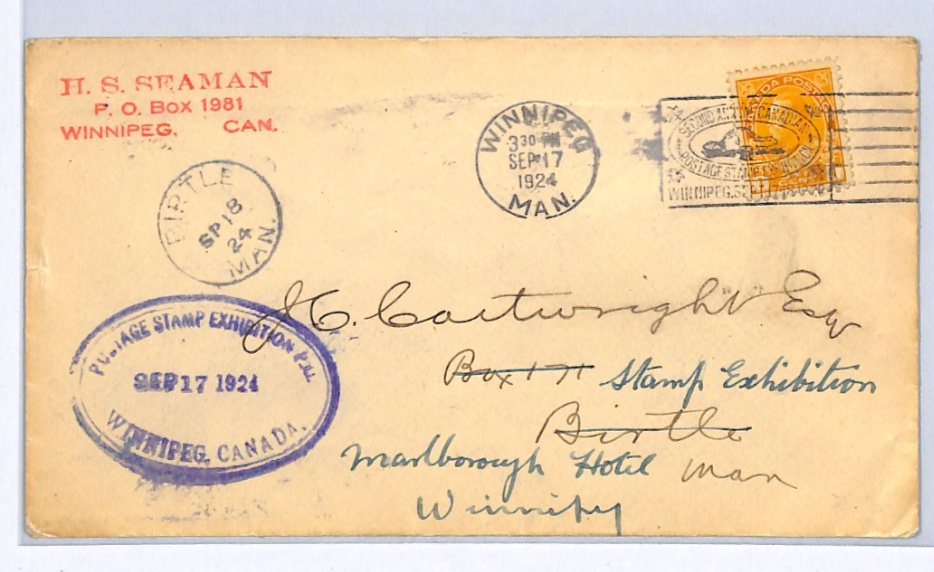 H. S. SEAMAN
P. O. Box 1981
WINNIPEG, CAN.
WINNIPEG
3 30 PM
SEP 17
1924
MAN.
SECOND ANNUAL CANADIAN
POSTAGE STAMP EXHIBITION
WINNIPEG, SEPT
CANADA POSTAGE
BIRTLE
SP 18
24
MAN.
POSTAGE STAMP EXHIBITION
SEP 17 1924
WINNIPEG, CANADA.
Cartwright Esq
Box 171 Stamp Exhibition
Birtle
Marlborough Hotel Man
Winnipeg